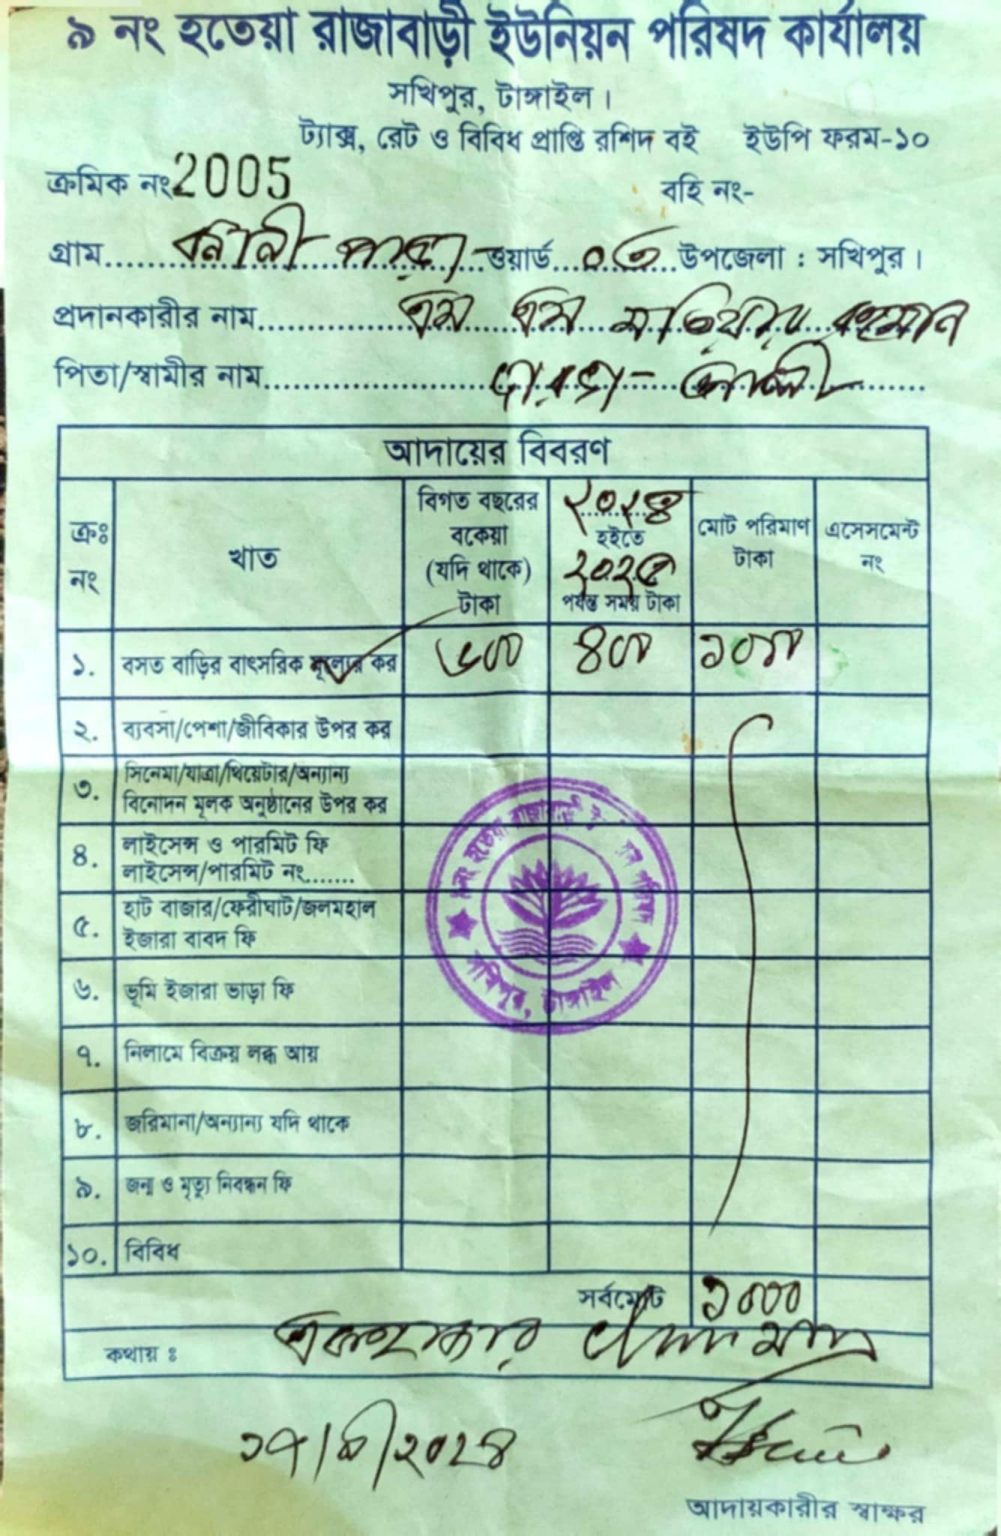 ৯ নং হতেয়া রাজাবাড়ী ইউনিয়ন পরিষদ কার্যালয়
সখিপুর, টাঙ্গাইল।
ট্যাক্স, রেট ও বিবিধ প্রাপ্তি রশিদ বই ইউপি ফরম-১০
ক্রমিক নং 2005 বহি নং-
গ্রাম............ পাড়া ওয়ার্ড....০৩ উপজেলা : সখিপুর।
প্রদানকারীর নাম.......... এম এম মতিয়ার রহমান
পিতা/স্বামীর নাম.......... আলী
আদায়ের বিবরণ
ক্রঃ নং খাত বিগত বছরের বকেয়া (যদি থাকে) টাকা ২০২৪ হইতে ২০২৫ পর্যন্ত সময় টাকা মোট পরিমাণ টাকা এসেসমেন্ট নং
১. বসত বাড়ির বাৎসরিক মূল্যের কর ৬০০ ৪০০ ১০০০
২. ব্যবসা/পেশা/জীবিকার উপর কর
৩. সিনেমা/যাত্রা/থিয়েটার/অন্যান্য
বিনোদন মূলক অনুষ্ঠানের উপর কর
৪. লাইসেন্স ও পারমিট ফি
লাইসেন্স/পারমিট নং.......
৫. হাট বাজার/ফেরীঘাট/জলমহাল
ইজারা বাবদ ফি
৬. ভূমি ইজারা ভাড়া ফি
৭. নিলামে বিক্রয় লব্ধ আয়
৮. জরিমানা/অন্যান্য যদি থাকে
৯. জন্ম ও মৃত্যু নিবন্ধন ফি
১০. বিবিধ
৯নং হতেয়া রাজাবাড়ী ইউনিয়ন পরিষদ
সখিপুর, টাঙ্গাইল
সর্বমোট ১০০০
কথায় ঃ একহাজার টাকা মাত্র
২০২৪
আদায়কারীর স্বাক্ষর